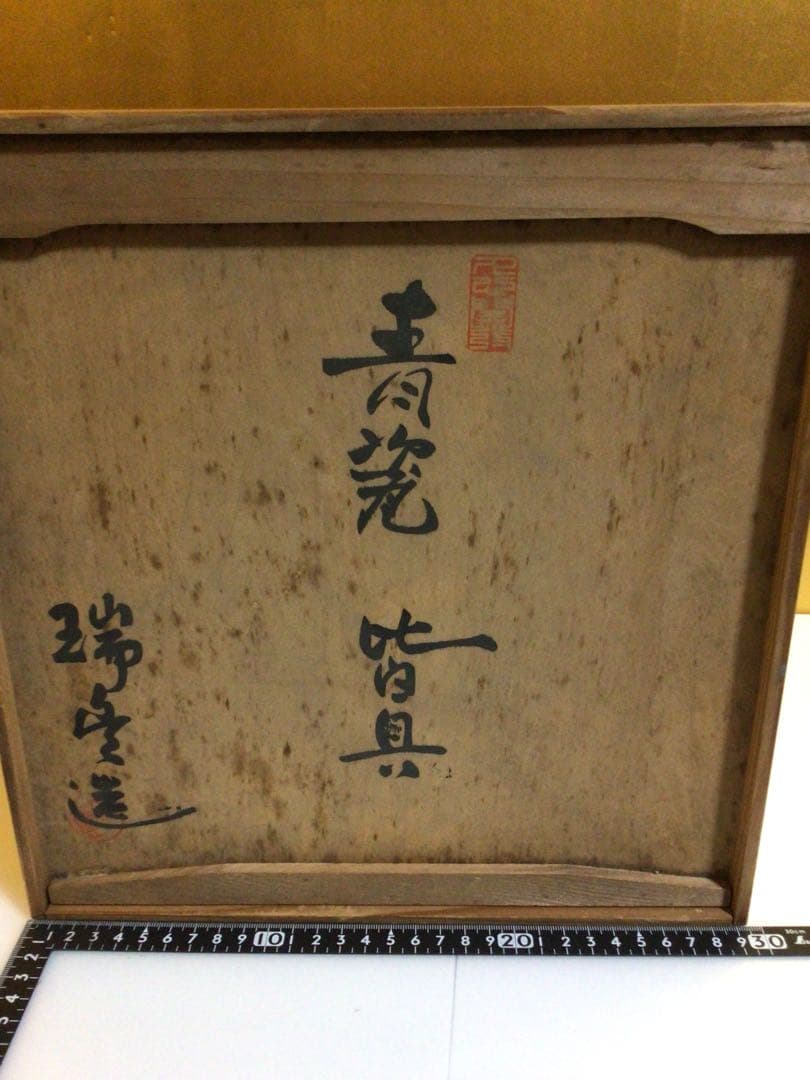 青瓷 皆具
瑞峯造
1 2 3 4 5 6 7 8 9 10 1 2 3 4 5 6 7 8 9 20 1 2 3 4 5 6 7 8 9 30
30cm
1 2 3 4 5